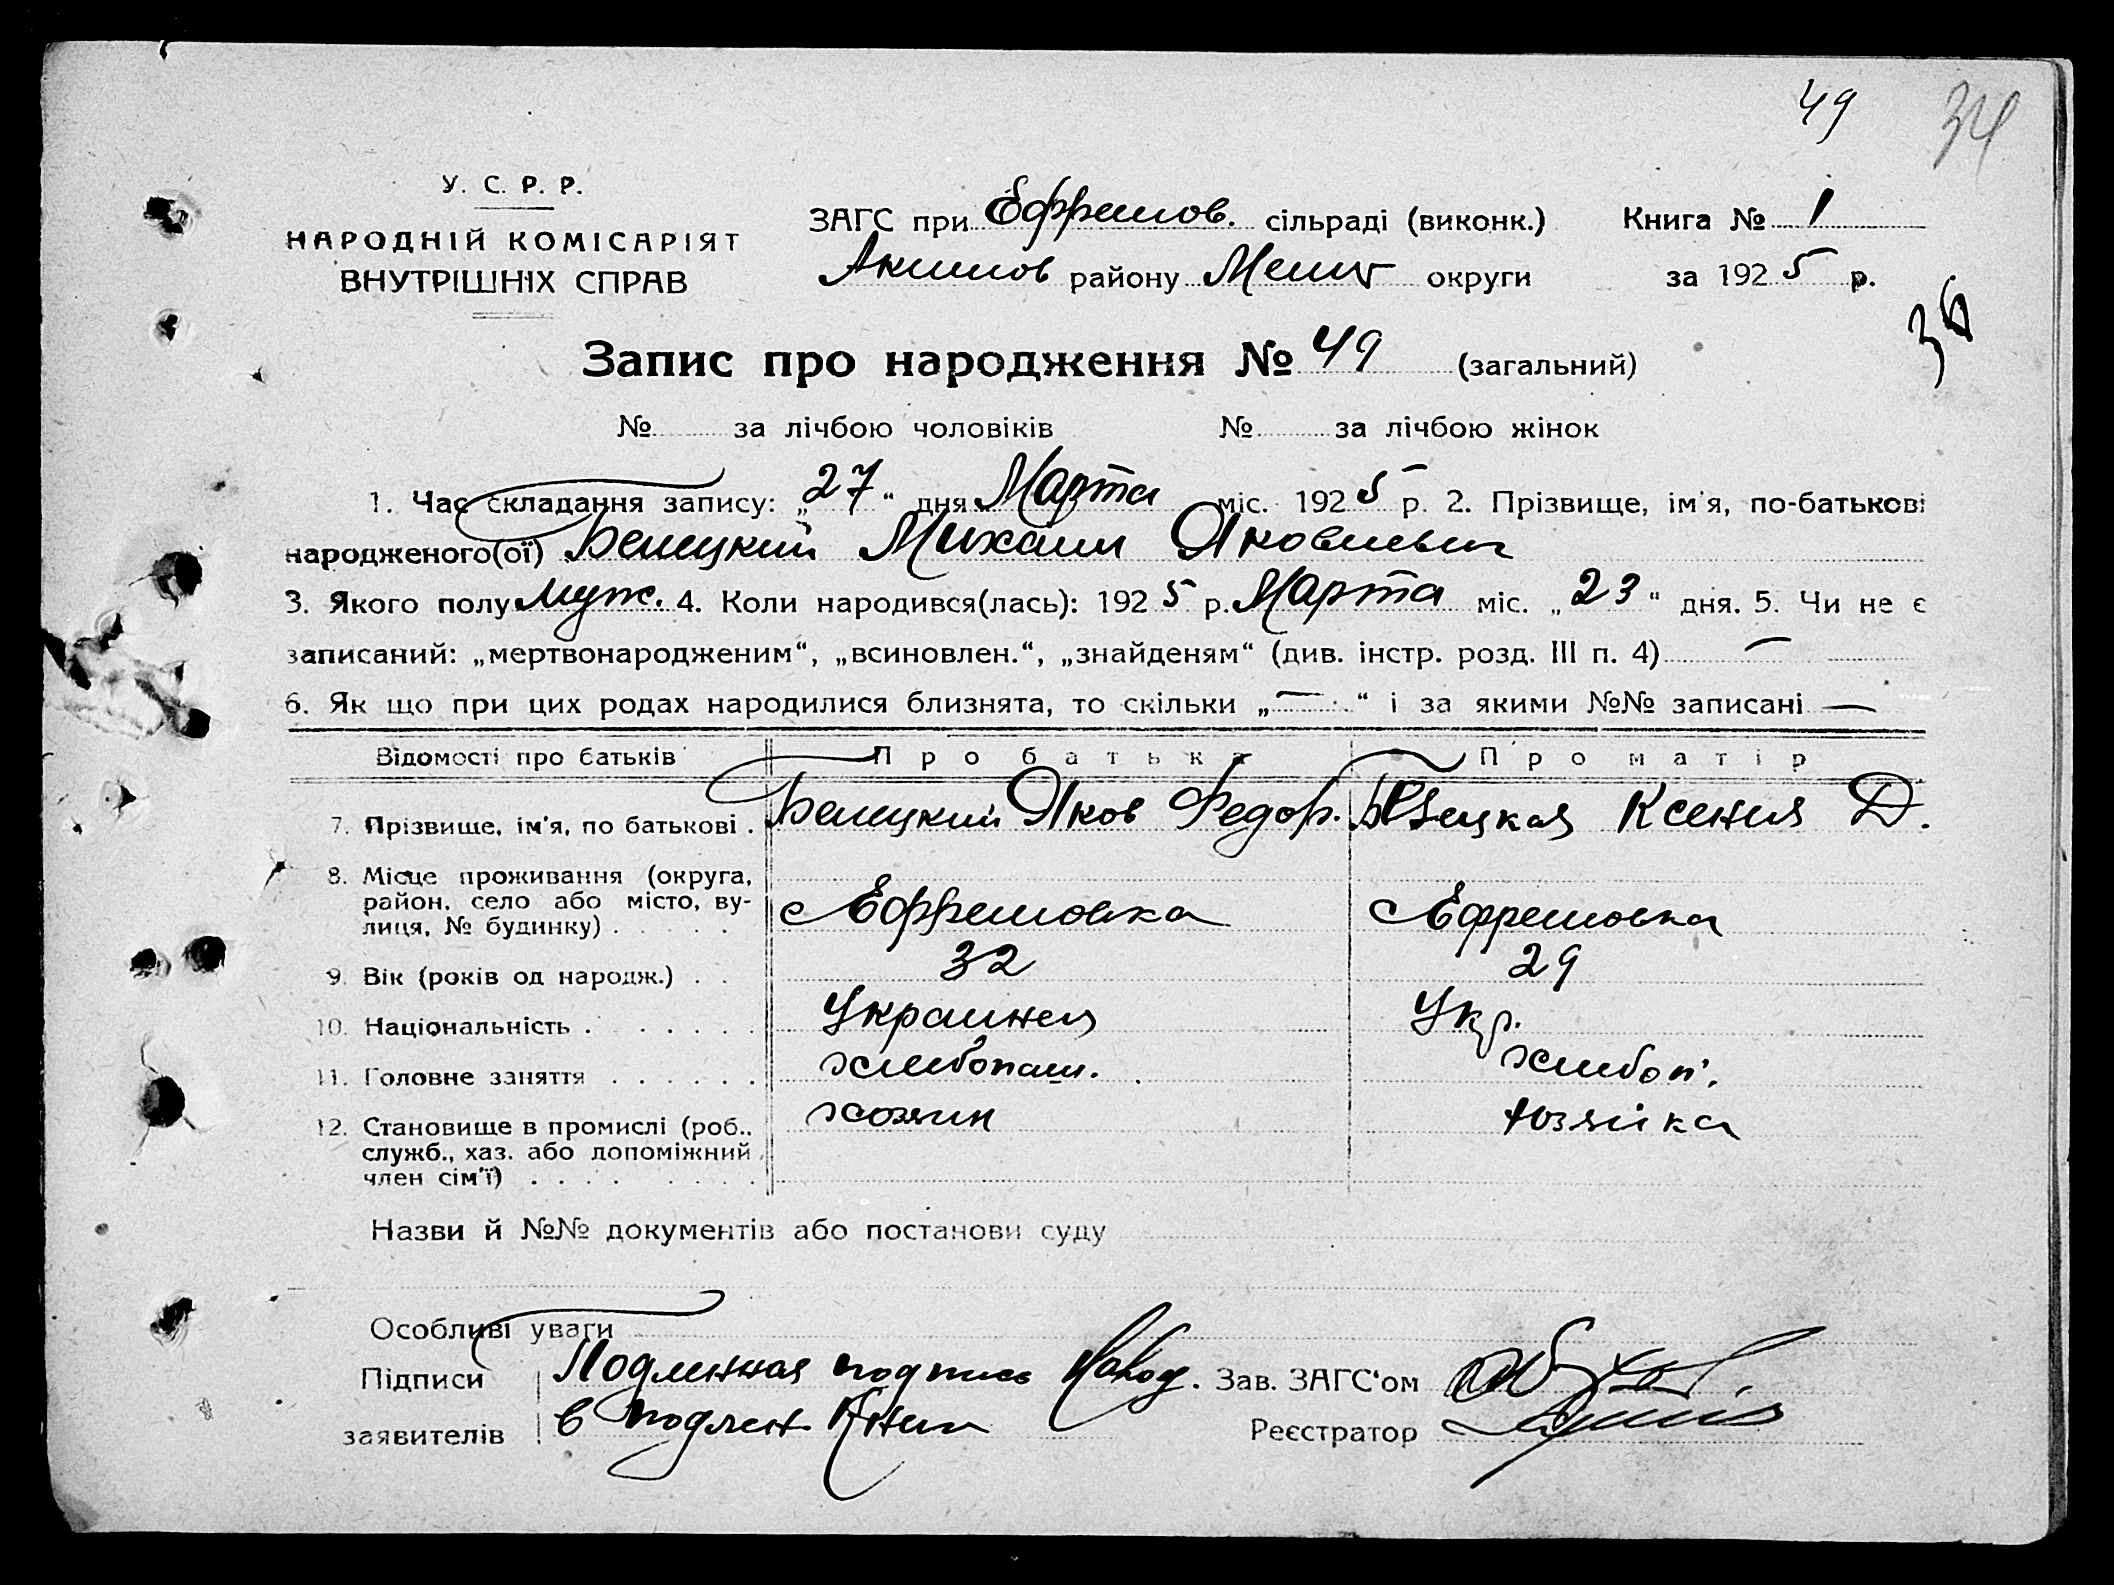 49 34
У. С. Р. Р.
НАРОДНІЙ КОМІСАРІЯТ
ВНУТРІШНІХ СПРАВ
ЗАГС при Ефремов. сільраді (виконк.) Книга № 1
Акимов району Мелит округи за 1925 р.
36
Запис про народження № 49 (загальний)
№ за лічбою чоловіків № за лічбою жінок
1. Час складання запису: „27“ дня Марта міс. 1925 р. 2. Прізвище, ім'я, по-батькові
народженого(ої) Белецкий Михаил Яковлевич
3. Якого полу муж. 4. Коли народився(лась): 1925 р. Марта міс. „23“ дня. 5. Чи не є
записаний: „мертвонародженим“, „всиновлен.“, „знайденям“ (див. інстр. розд. III п. 4) —
6. Як що при цих родах народилися близнята, то скільки „—“ і за якими №№ записані —
Відомості про батьків Про батька Про матір
7. Прізвище, ім'я, по батькові . Белецкий Яков Федор. Белецкая Ксения Д.
8. Місце проживання (округа,
район, село або місто, ву-
лиця, № будинку) . . . . . с Ефремовка с Ефремовка
9. Вік (років од народж.) . . 32 29
10. Національність . . . . . . Украинец Укр.
11. Головне заняття . . . . . . хлебопаш. хлебоп.
12. Становище в промислі (роб.,
служб., хаз. або допоміжний
член сім'ї) . . . . . . . . хозяин хозяйка
Назви й №№ документів або постанови суду
Особливі уваги
Підписи Подлинная подпись наход. Зав. ЗАГС'ом
заявителів в подлин. Книге Реєстратор